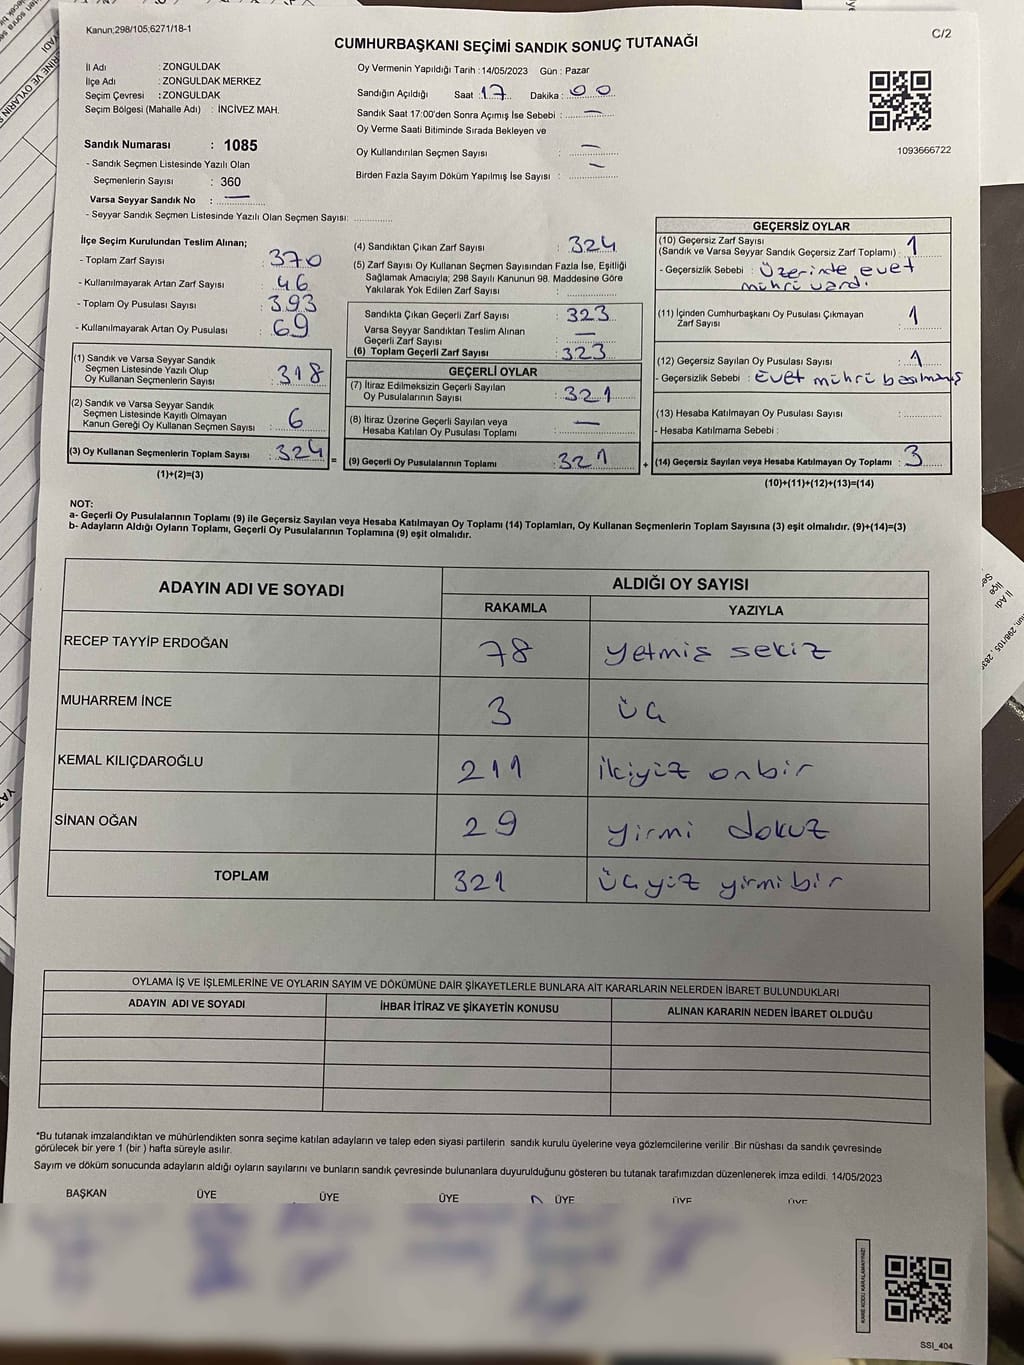 Kanun;298/105,6271/18-1
C/2
CUMHURBAŞKANI SEÇİMİ SANDIK SONUÇ TUTANAĞI
İl Adı : ZONGULDAK
İlçe Adı : ZONGULDAK MERKEZ
Seçim Çevresi : ZONGULDAK
Seçim Bölgesi (Mahalle Adı) : İNCİVEZ MAH.
Sandık Numarası : 1085
- Sandık Seçmen Listesinde Yazılı Olan
Seçmenlerin Sayısı : 360
Varsa Seyyar Sandık No : —
- Seyyar Sandık Seçmen Listesinde Yazılı Olan Seçmen Sayısı: ..............
Oy Vermenin Yapıldığı Tarih : 14/05/2023 Gün : Pazar
Sandığın Açıldığı Saat 17 Dakika : 00
Sandık Saat 17:00'den Sonra Açımış İse Sebebi : —
Oy Verme Saati Bitiminde Sırada Bekleyen ve
Oy Kullandırılan Seçmen Sayısı : —
Birden Fazla Sayım Döküm Yapılmış İse Sayısı : —
1093666722
İlçe Seçim Kurulundan Teslim Alınan;
- Toplam Zarf Sayısı : 370
- Kullanılmayarak Artan Zarf Sayısı : 46
- Toplam Oy Pusulası Sayısı : 393
- Kullanılmayarak Artan Oy Pusulası : 69
(1) Sandık ve Varsa Seyyar Sandık
Seçmen Listesinde Yazılı Olup
Oy Kullanan Seçmenlerin Sayısı : 318
(2) Sandık ve Varsa Seyyar Sandık
Seçmen Listesinde Kayıtlı Olmayan
Kanun Gereği Oy Kullanan Seçmen Sayısı : 6
(3) Oy Kullanan Seçmenlerin Toplam Sayısı : 324
(1)+(2)=(3)
(4) Sandıktan Çıkan Zarf Sayısı : 324
(5) Zarf Sayısı Oy Kullanan Seçmen Sayısından Fazla İse, Eşitliği
Sağlamak Amacıyla; 298 Sayılı Kanunun 98. Maddesine Göre
Yakılarak Yok Edilen Zarf Sayısı : ..............
Sandıkta Çıkan Geçerli Zarf Sayısı : 323
Varsa Seyyar Sandıktan Teslim Alınan
Geçerli Zarf Sayısı : —
(6) Toplam Geçerli Zarf Sayısı : 323
GEÇERLİ OYLAR
(7) İtiraz Edilmeksizin Geçerli Sayılan
Oy Pusulalarının Sayısı : 321
(8) İtiraz Üzerine Geçerli Sayılan veya
Hesaba Katılan Oy Pusulası Toplamı : —
= (9) Geçerli Oy Pusulalarının Toplamı : 321
GEÇERSİZ OYLAR
(10) Geçersiz Zarf Sayısı
(Sandık ve Varsa Seyyar Sandık Geçersiz Zarf Toplamı) : 1
- Geçersizlik Sebebi : Üzerinde evet
mührü vardı.
(11) İçinden Cumhurbaşkanı Oy Pusulası Çıkmayan
Zarf Sayısı : 1
(12) Geçersiz Sayılan Oy Pusulası Sayısı : 1
- Geçersizlik Sebebi : Evet mührü basılmamış
(13) Hesaba Katılmayan Oy Pusulası Sayısı : ..............
- Hesaba Katılmama Sebebi :
+ (14) Geçersiz Sayılan veya Hesaba Katılmayan Oy Toplamı : 3
(10)+(11)+(12)+(13)=(14)
NOT:
a- Geçerli Oy Pusulalarının Toplamı (9) ile Geçersiz Sayılan veya Hesaba Katılmayan Oy Toplamı (14) Toplamları, Oy Kullanan Seçmenlerin Toplam Sayısına (3) eşit olmalıdır. (9)+(14)=(3)
b- Adayların Aldığı Oyların Toplamı, Geçerli Oy Pusulalarının Toplamına (9) eşit olmalıdır.
ADAYIN ADI VE SOYADI ALDIĞI OY SAYISI
RAKAMLA YAZIYLA
RECEP TAYYİP ERDOĞAN 78 yetmiş sekiz
MUHARREM İNCE 3 üç
KEMAL KILIÇDAROĞLU 211 ikiyüz onbir
SİNAN OĞAN 29 yirmi dokuz
TOPLAM 321 üçyüz yirmibir
OYLAMA İŞ VE İŞLEMLERİNE VE OYLARIN SAYIM VE DÖKÜMÜNE DAİR ŞİKAYETLERLE BUNLARA AİT KARARLARIN NELERDEN İBARET BULUNDUKLARI
ADAYIN ADI VE SOYADI İHBAR İTİRAZ VE ŞİKAYETİN KONUSU ALINAN KARARIN NEDEN İBARET OLDUĞU
*Bu tutanak imzalandıktan ve mühürlendikten sonra seçime katılan adayların ve talep eden siyasi partilerin sandık kurulu üyelerine veya gözlemcilerine verilir .Bir nüshası da sandık çevresinde
görülecek bir yere 1 (bir ) hafta süreyle asılır.
Sayım ve döküm sonucunda adayların aldığı oyların sayılarını ve bunların sandık çevresinde bulunanlara duyurulduğunu gösteren bu tutanak tarafımızdan düzenlenerek imza edildi. 14/05/2023
BAŞKAN ÜYE ÜYE ÜYE ÜYE ÜYE ÜYE
KARE KODU KARALAMAYINIZ!
SSI_404